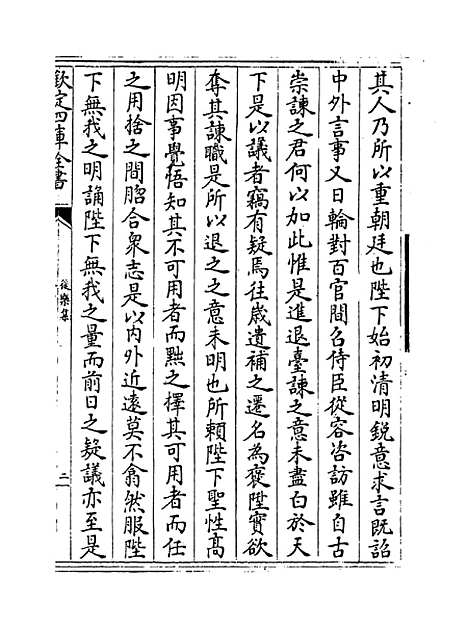 其人乃所以重朝廷也陛下始初清明銳意求言既詔
中外言事又日輪對百官間召侍臣從容咨訪雖自古
崇諫之君何以加此惟是進退臺諫之意未盡白於天
下是以議者竊有疑焉往歲遺補之遷名為襃陞實欲
奪其諫職是所以退之之意未明也所頼陛下聖性高
明因事覺悟知其不可用者而黜之擇其可用者而任
之用捨之間脗合衆志是以内外近遠莫不翕然服陛
下無我之明誦陛下無我之量而前日之疑議亦至是
欽定四庫全書
後樂集
三